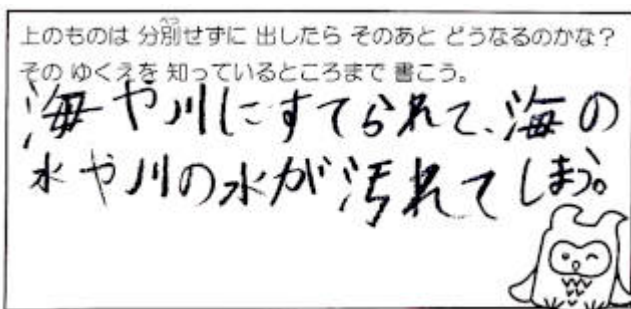 上のものは 分別せずに 出したら そのあと どうなるのかな？
その ゆくえを 知っているところまで 書こう。
海や川にすてられて、海の
水や川の水が汚れてしまう。